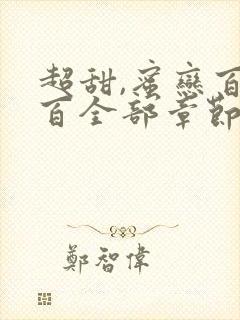 超甜,蜜戀百
百全部章節
鄭智偉